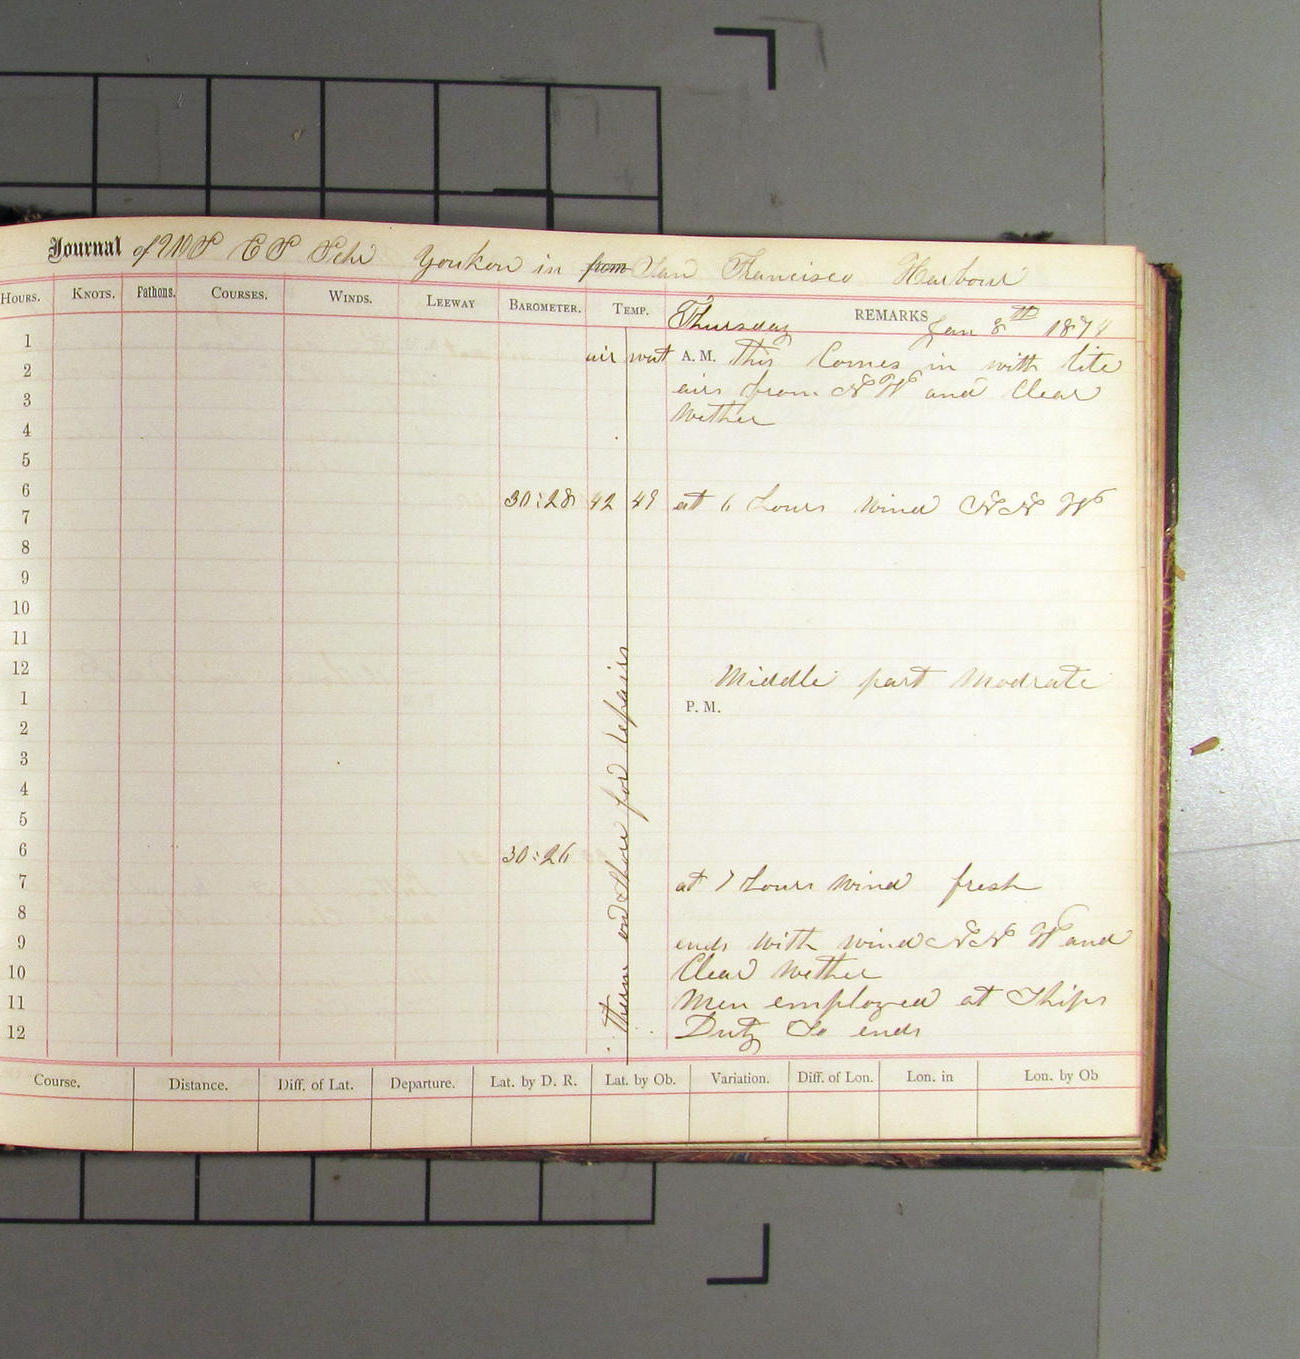 Journal of U S C S Schr Youkon in from San Francisco Harbour
HOURS. KNOTS. Fathoms. COURSES. WINDS. LEEWAY BAROMETER. TEMP. REMARKS
Thursday Jan 8th 1874
1
air wat A. M. This Comes in with lite
2
airs from N W and Clear
3
Wether
4
5
6 30:28 42 49 at 6 hours wind N N W
7
8
9
10
11
12 Middle part Modrate
1 P. M.
2
3
4
5
6 30:26
7 at 7 hours wind fresh
8
9 ends with wind N N W and
10 Clear Wether
11 Men employed at Ships
12 Duty So ends
Therm on Shore for repairs
Course. Distance. Diff. of Lat. Departure. Lat. by D. R. Lat. by Ob. Variation. Diff. of Lon. Lon. in Lon. by Ob